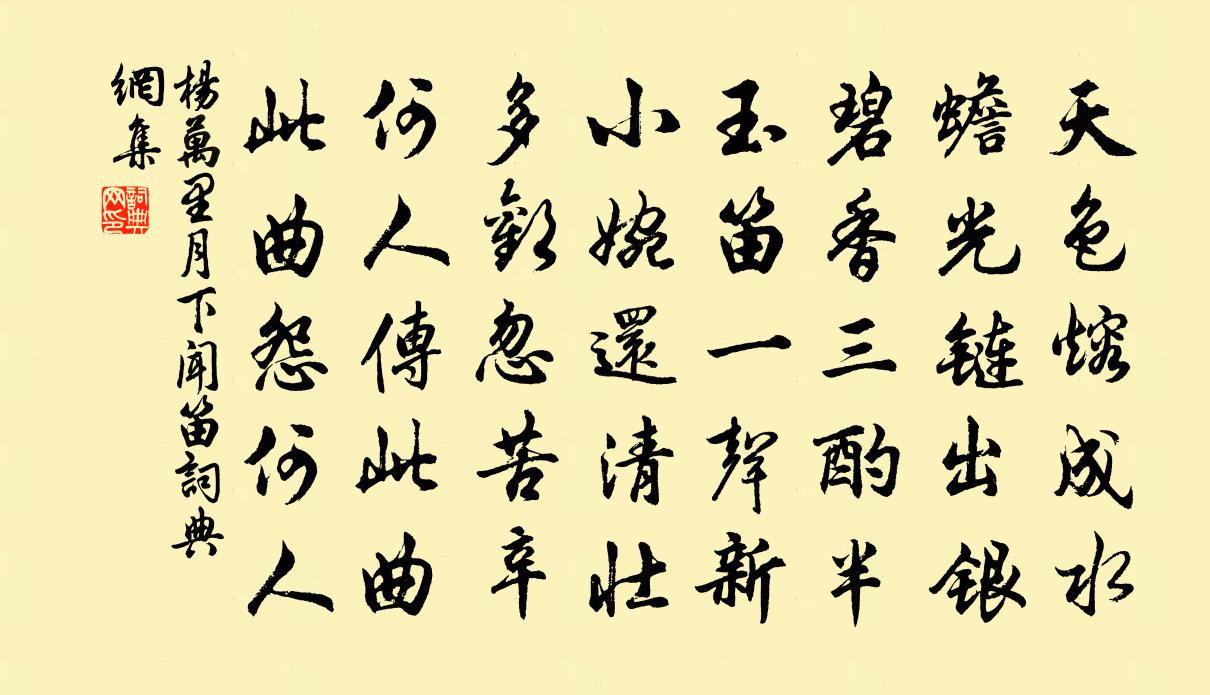 天色熔成水
蟾光鏈出銀
碧香三酌半
玉笛一聲新
小婉還清壯
多歡忽苦辛
何人傳此曲
此曲怨何人
楊萬里月下聞笛詞典
網集
詞典
网印